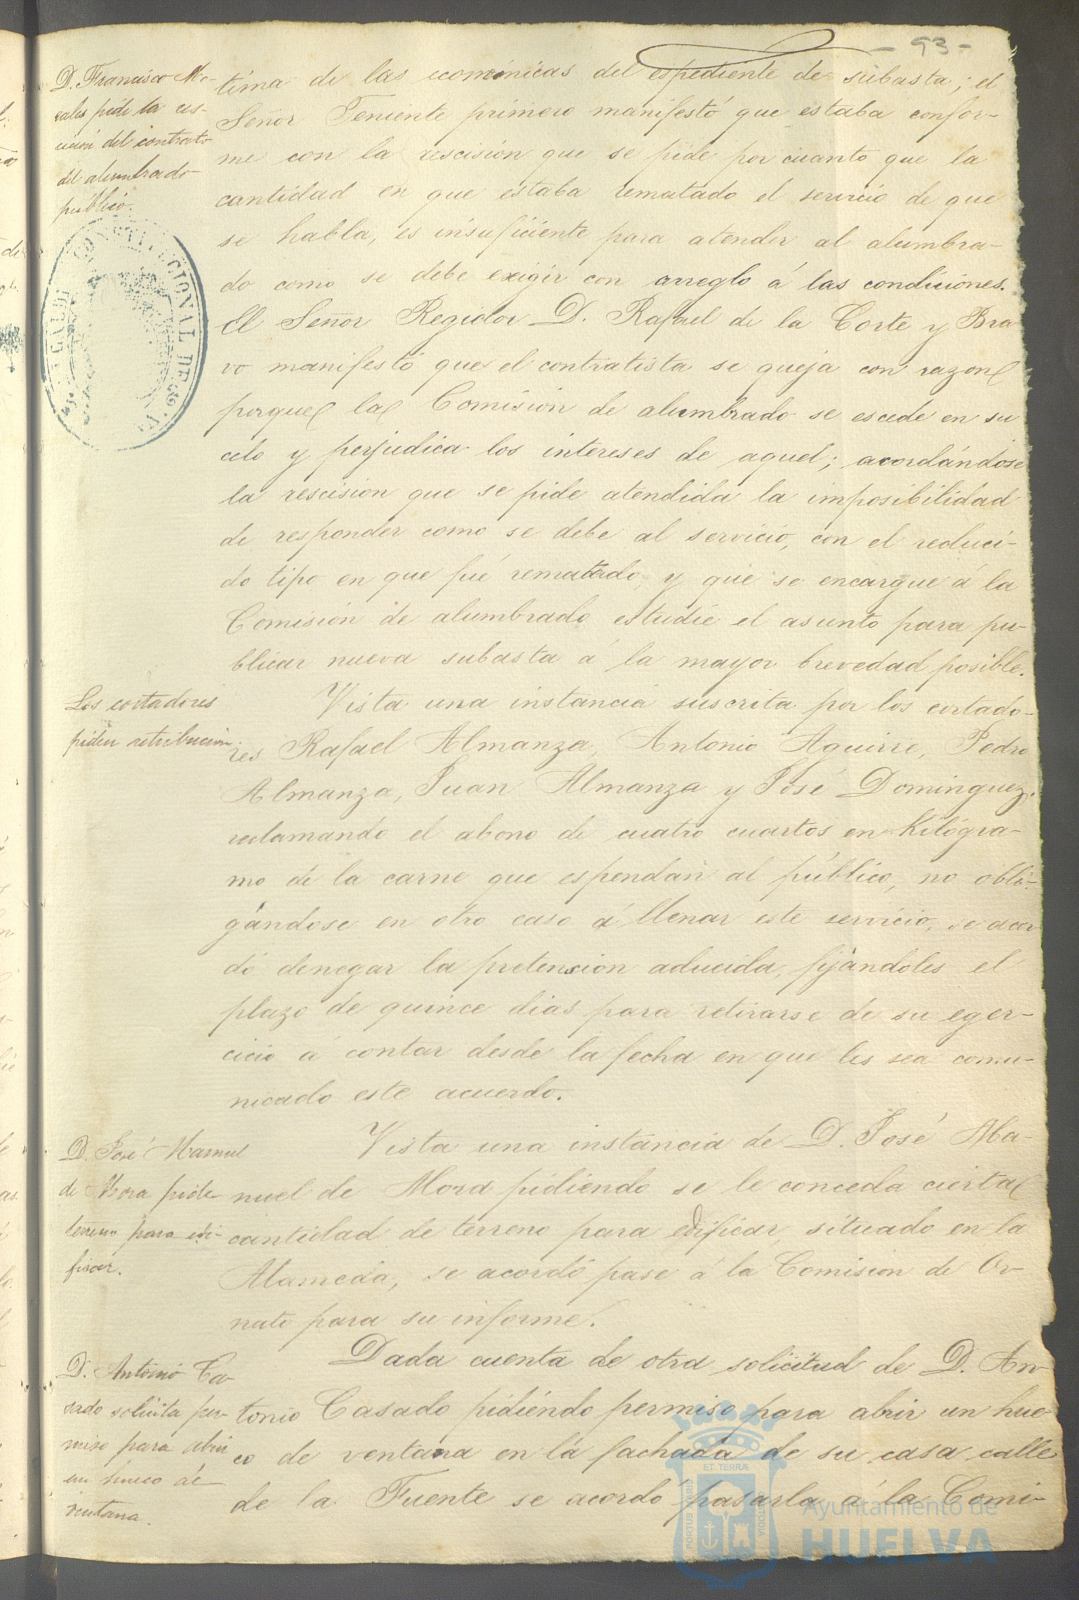 - 93 -
D. Francisco Mo-
rales pide la res-
cision del contrato
del alumbrado
público.
tima de las económicas del espediente de subasta; el
Señor Teniente primero manifestó que estaba confor-
me con la rescisión que se pide por cuanto que la
cantidad en que estaba rematado el servicio de que
se habla, es insuficiente para atender al alumbra-
do como se debe exigir con arreglo á las condiciones.
El Señor Regidor D. Rafael de la Corte y Bra-
vo manifestó que el contratista se queja con razon
porque la Comision de alumbrado se escede en su
celo y perjudica los intereses de aquel; acordándose
la rescision que se pide atendida la imposibilidad
de responder como se debe al servicio, con el reduci-
do tipo en que fué rematado, y que se encargue á la
Comisión de alumbrado estudie el asunto para pu-
blicar nueva subasta á la mayor brevedad posible.
Los cortadores
piden retribucion.
Vista una instancia suscrita por los cortado-
res Rafael Almanza, Antonio Aguirre, Pedro
Almanza, Juan Almanza y José Dominguez,
reclamando el abono de cuatro cuartos en kilógra-
mo de la carne que espendan al público, no obli-
gándose en otro caso á llenar este servicio, se acor-
dó denegar la pretension aducida, fijándoles el
plazo de quince dias para retirarse de su eger-
cicio á contar desde la fecha en que les sea comu-
nicado este acuerdo.
D. José Manuel
de Mora pide
terreno para edi-
ficar.
Vista una instancia de D. José Ma-
nuel de Mora pidiendo se le conceda cierta
cantidad de terreno para edificar, situado en la
Alameda, se acordó pase á la Comision de Or-
nato para su informe.
D. Antonio Ca-
sado solicita per-
miso para abrir
un hueco de
ventana.
Dada cuenta de otra solicitud de D. An-
tonio Casado pidiendo permiso para abrir un hue-
co de ventana en la fachada de su casa calle
de la Fuente se acordó pasarla á la Comi-
CONSTITUCIONAL DE
PORTUS MARIS
ET TERRÆ
CUSTODIA
Ayuntamiento de
HUELVA